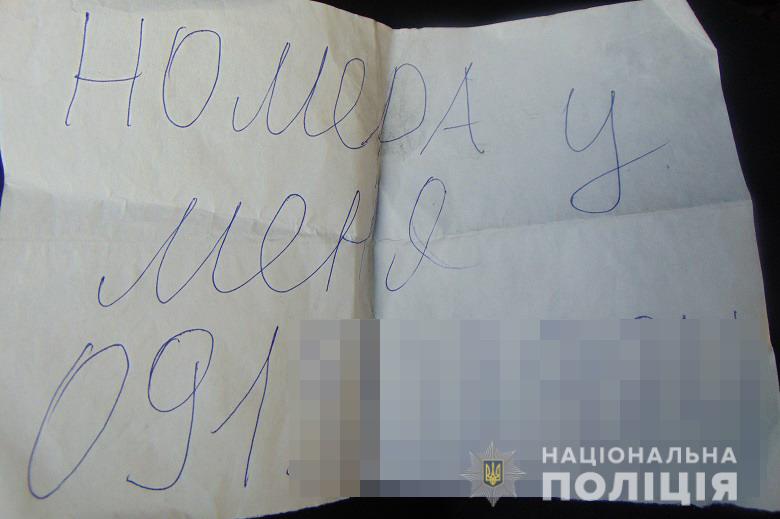 НОМЕРА У
МЕНЯ
091
НАЦІОНАЛЬНА
ПОЛІЦІЯ